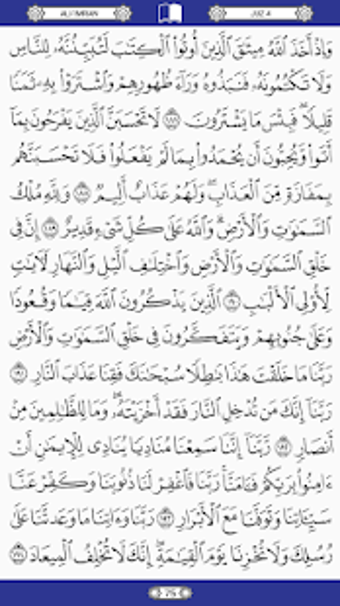 ALI 'IMRAN JUZ 4
وَإِذۡ أَخَذَ ٱللَّهُ مِيثَٰقَ ٱلَّذِينَ أُوتُواْ ٱلۡكِتَٰبَ لَتُبَيِّنُنَّهُۥ لِلنَّاسِ
وَلَا تَكۡتُمُونَهُۥ فَنَبَذُوهُ وَرَآءَ ظُهُورِهِمۡ وَٱشۡتَرَوۡاْ بِهِۦ ثَمَنٗا
قَلِيلٗاۖ فَبِئۡسَ مَا يَشۡتَرُونَ ١٨٧ لَا تَحۡسَبَنَّ ٱلَّذِينَ يَفۡرَحُونَ بِمَآ
أَتَواْ وَّيُحِبُّونَ أَن يُحۡمَدُواْ بِمَا لَمۡ يَفۡعَلُواْ فَلَا تَحۡسَبَنَّهُم
بِمَفَازَةٖ مِّنَ ٱلۡعَذَابِۖ وَلَهُمۡ عَذَابٌ أَلِيمٞ ١٨٨ وَلِلَّهِ مُلۡكُ
ٱلسَّمَٰوَٰتِ وَٱلۡأَرۡضِۗ وَٱللَّهُ عَلَىٰ كُلِّ شَيۡءٖ قَدِيرٌ ١٨٩ إِنَّ فِي
خَلۡقِ ٱلسَّمَٰوَٰتِ وَٱلۡأَرۡضِ وَٱخۡتِلَٰفِ ٱلَّيۡلِ وَٱلنَّهَارِ لَأٓيَٰتٖ
لِّأُوْلِي ٱلۡأَلۡبَٰبِ ١٩٠ ٱلَّذِينَ يَذۡكُرُونَ ٱللَّهَ قِيَٰمٗا وَقُعُودٗا
وَعَلَىٰ جُنُوبِهِمۡ وَيَتَفَكَّرُونَ فِي خَلۡقِ ٱلسَّمَٰوَٰتِ وَٱلۡأَرۡضِ
رَبَّنَا مَا خَلَقۡتَ هَٰذَا بَٰطِلٗا سُبۡحَٰنَكَ فَقِنَا عَذَابَ ٱلنَّارِ ١٩١
رَبَّنَآ إِنَّكَ مَن تُدۡخِلِ ٱلنَّارَ فَقَدۡ أَخۡزَيۡتَهُۥۖ وَمَا لِلظَّٰلِمِينَ مِنۡ
أَنصَارٖ ١٩٢ رَّبَّنَآ إِنَّنَا سَمِعۡنَا مُنَادِيٗا يُنَادِي لِلۡإِيمَٰنِ أَنۡ
ءَامِنُواْ بِرَبِّكُمۡ فَـَٔامَنَّاۚ رَبَّنَا فَٱغۡفِرۡ لَنَا ذُنُوبَنَا وَكَفِّرۡ عَنَّا
سَيِّـَٔاتِنَا وَتَوَفَّنَا مَعَ ٱلۡأَبۡرَارِ ١٩٣ رَبَّنَا وَءَاتِنَا مَا وَعَدتَّنَا عَلَىٰ
رُسُلِكَ وَلَا تُخۡزِنَا يَوۡمَ ٱلۡقِيَٰمَةِۖ إِنَّكَ لَا تُخۡلِفُ ٱلۡمِيعَادَ ١٩٤
75